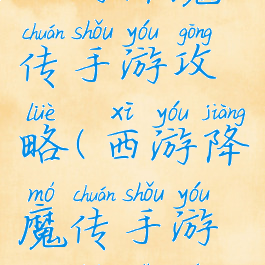 chuán shǒu yóu gōng
传手游攻
lüè xī yóu jiàng
略(西游降
mó chuán shǒu yóu
魔传手游